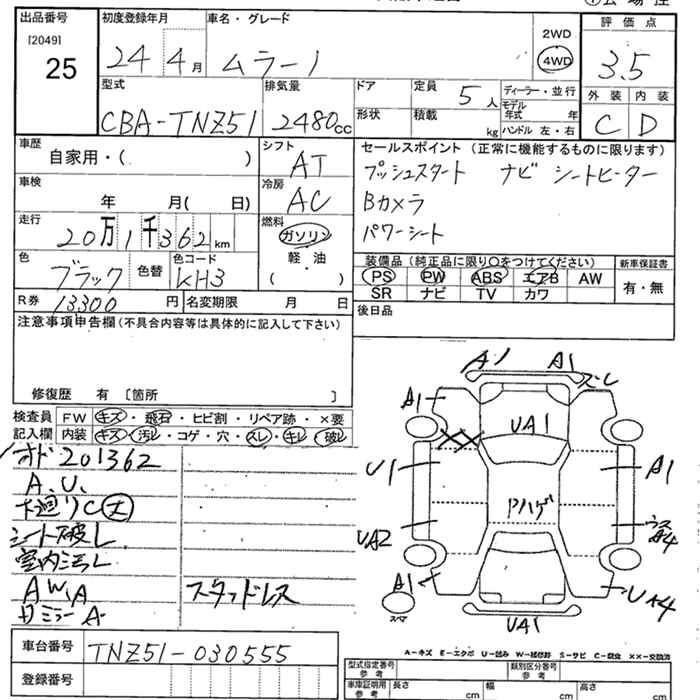 出品番号 初度登録年月 車名・グレード 評価点
[2049] 25 24年 4月 ムラーノ 2WD 4WD 3.5
型式 排気量 ドア 定員 5人 ディーラー・並行 外装 内装
CBA-TNZ51 2480cc 形状 積載 kg モデル年式 年 C D
ハンドル 左・右
車歴 自家用・( ) シフト AT セールスポイント (正常に機能するものに限ります)
プッシュスタート ナビ シートヒーター
車検 年 月( 日) 冷房 AC Bカメラ
走行 20万1千362km 燃料 ガソリン パワーシート
軽・油 ( )
色 ブラック 色替 色コード KH3 装備品 (純正品に限り○をつけてください) 新車保証書
PS PW ABS エアB AW 有・無
R券 13300円 名変期限 月 日 SR ナビ TV カワ
注意事項申告欄(不具合内容等は具体的に記入して下さい) 後日品
修復歴 有 〔箇所 〕
検査員 FW キズ・飛石・ヒビ割・リペア跡・×要
記入欄 内装 キズ・汚レ・コゲ・穴・スレ・キレ・破レ
オド201362
A.U.
シート破レ
室内汚レ
AW.A スタッドレス
ミラーA
A1 A1
A1 UA1
U1 A1
Pハゲ
UA2 ウス A4
A1 UA4
スペア UA1
A-キズ E-エクボ U-凹み W-補修跡 S-サビ C-腐食 ××-交換済
車台番号 TNZ51-030555
登録番号
型式指定番号 参考 類別区分番号 参考
車庫証明用 参考 長さ cm 幅 cm 高さ cm